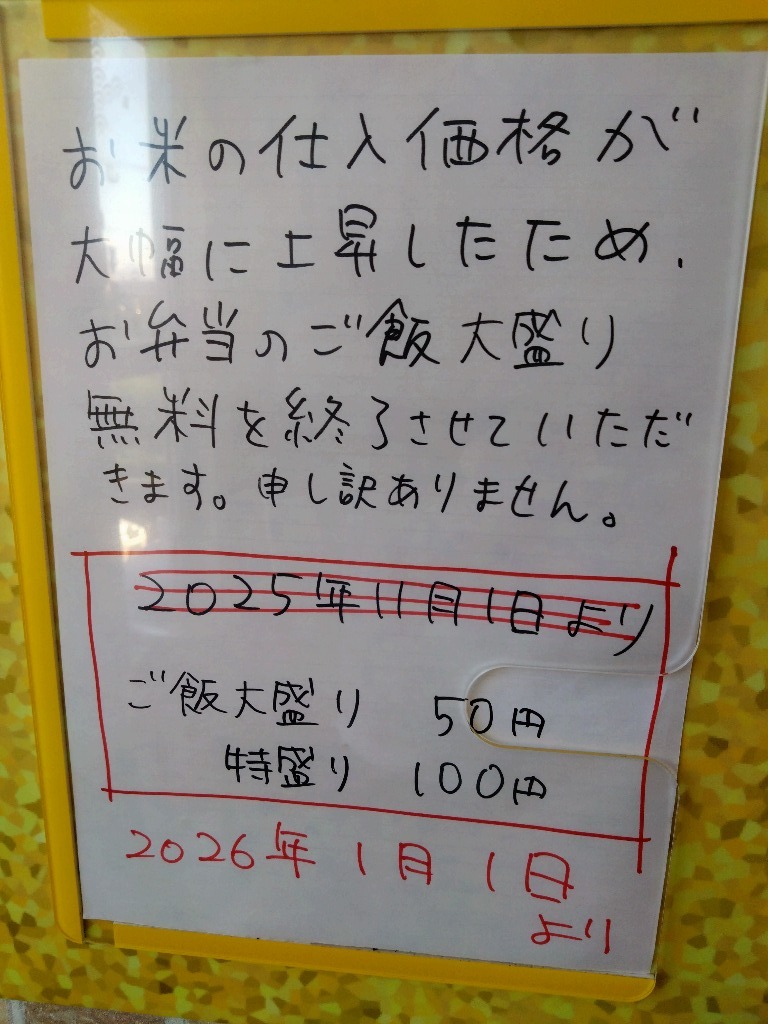 お米の仕入価格が
大幅に上昇したため、
お弁当のご飯大盛り
無料を終了させていただ
きます。申し訳ありません。
2025年11月1日より
ご飯大盛り 50円
特盛り 100円
2026年1月1日
より